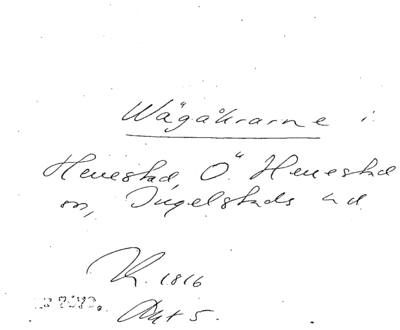 Wägåkrarne i
Herrestad, Ö Herrestad
sn, Ingelstads hd
K. 1816
Akt 5.